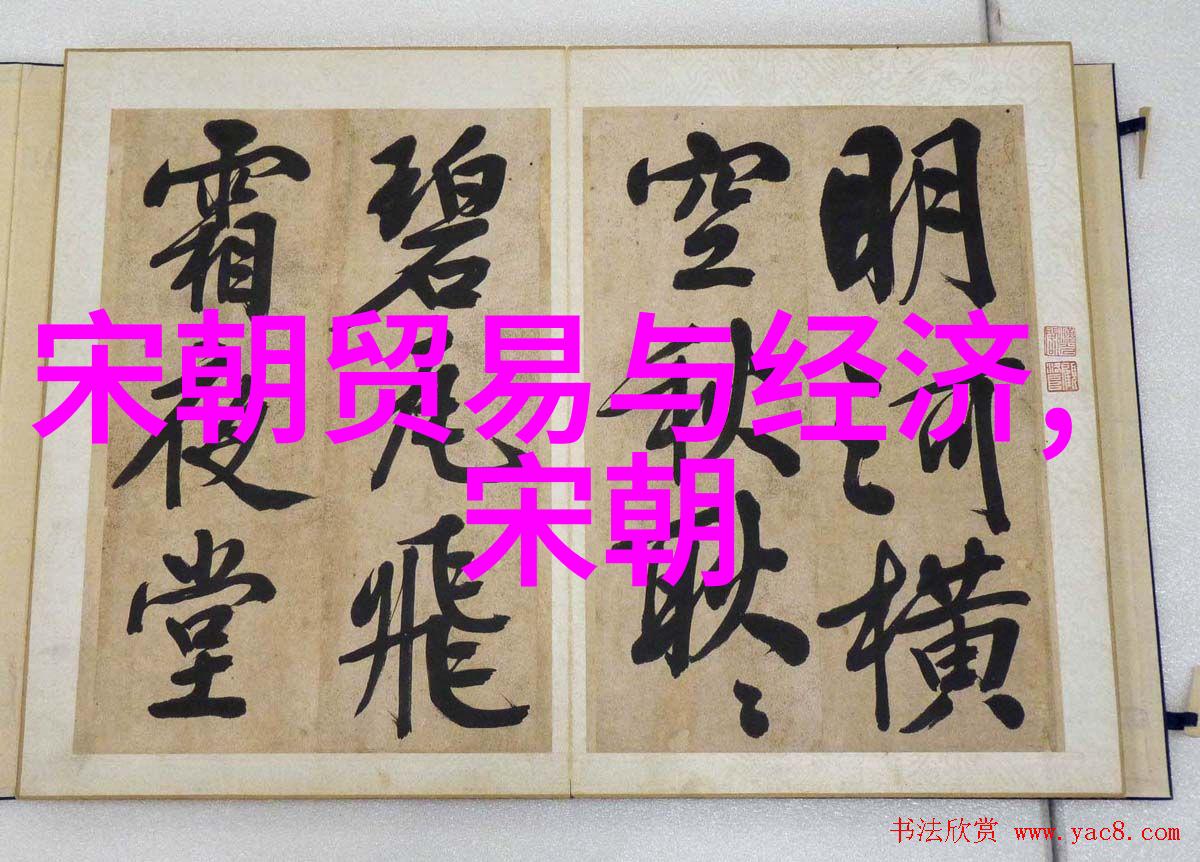 宋朝贸易与经济，
宋朝
明河横
空秋耿〻
碧瓦飛
霜夜堂
书法欣赏 www.yac8.com